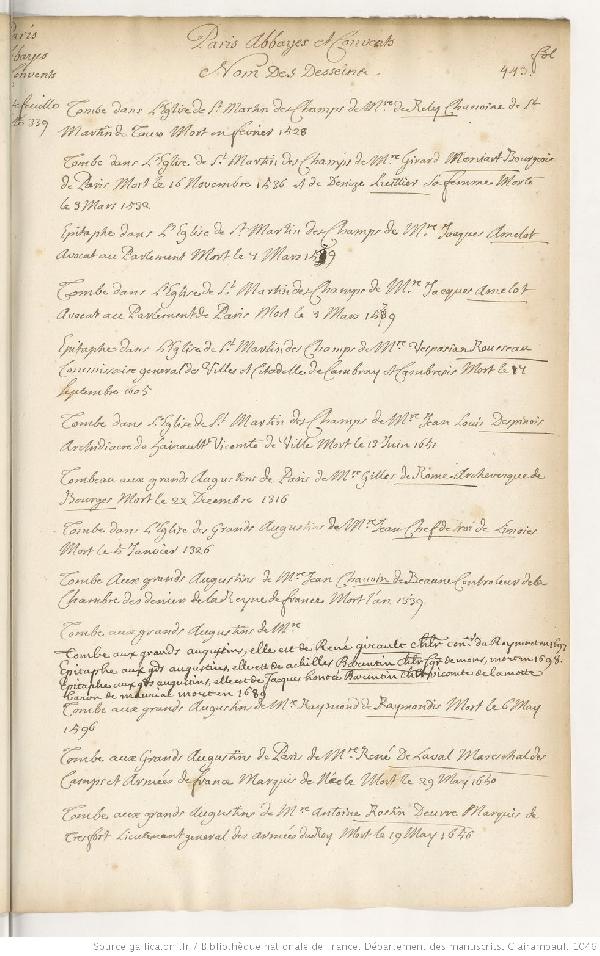 Paris
Abbayes
Convents
feuillo
339
Paris Abbayes et Convents
Nom Des Desseins.
fol
443.
Tombe dans L'Eglise de St. Martin des Champs de Mre. de Relly Chanoine de St
Martin de Tours Mort en février 1528
Tombe dans L'Eglise de St. Martin des Champs de Mre Girard Bourgeois
de Paris Mort le 16 Novembre 1536 et de Denize Luillier Sa femme Morte
le 3 Mars 1532
Epitaphe dans L'Eglise de St Martin des Champs de Mre. Jacques Amelot
Avocat au Parlement Mort le Mars
Tombe dans L'Eglise de St. Martin des Champs de Mre Jacques Amelot
Avocat au Parlement de Paris Mort le Mars
Epitaphe dans L'Eglise de St Martin des Champs de Mre Vespasian Rousseau
Commissaire general des Villes et Citadelle de Cambray et Cambresis Mort le 17
Septembre 1605
Tombe dans L'Eglise de St Martin des Champs de Mre Jean Louis Despinois
Archidiacre du Hainault Vicomte de Ville Mort le 13 Juin 1651
Tombeau aux grands Augustins de Paris de Mre Gilles de Rome Archevesque de
Bourges Mort le 22 Decembre 1316
Tombe dans L'Eglise des Grands Augustins de Mre Jean Chef de roi de
Mort le Janvier 1326
Tombe Aux grands Augustins de Mre Jean Chauvin de Beaune Controleur de la
Chambre des deniers de la Reyne de france Mort l'an 1539
Tombe aux grands Augustins de Mre
Tombe aux grands augustins, elle est de René girault du Roy mort en 1697
Epitaphe aux gds augustins, elle est de achilles Barentin de mons, mort en 1698.
Epitaphe aux gds augustins, elle est de Jaques honoré Barentin vicomte de la motte
Baron de mauriac mort en 1689
Tombe aux grands Augustins de Mre Raymond de Raymondis Mort le 6 May
1596
Tombe aux Grands Augustins de Paris de Mre René De Laval Mareschal des
Camps et Armées de france Marquis de Néele Mort le 29 May 1650
Tombe aux grands Augustins de Mre Antoine Rostin Deuvre Marquis de
Tresfort Lieutenant general des Armées du Roy Mort le 19 May 1646
Source gallica.bnf.fr / Bibliothèque nationale de France. Département des manuscrits. Clairambault. 1046